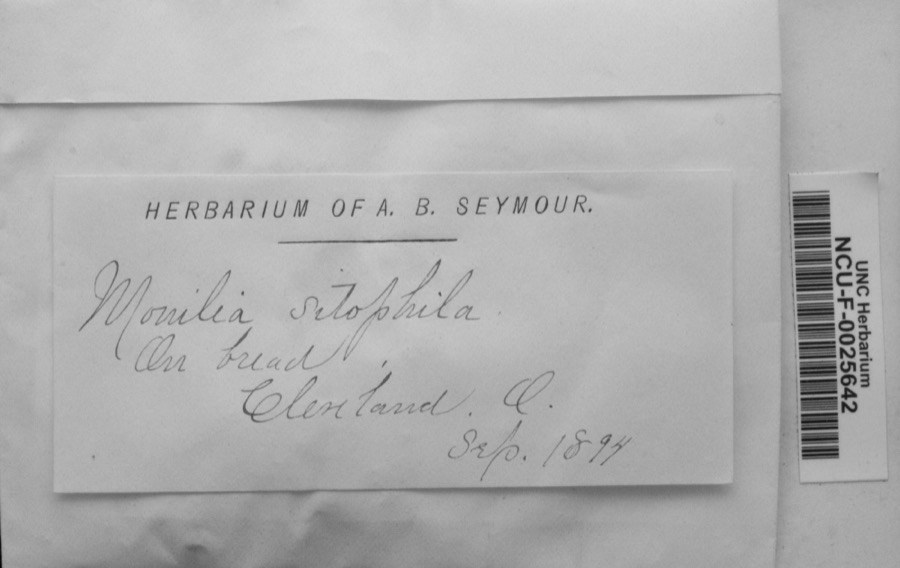 HERBARIUM OF A. B. SEYMOUR.
Monilia sitophila.
On bread.
Cleveland. O.
Sep. 1894
UNC Herbarium
NCU-F-0025642